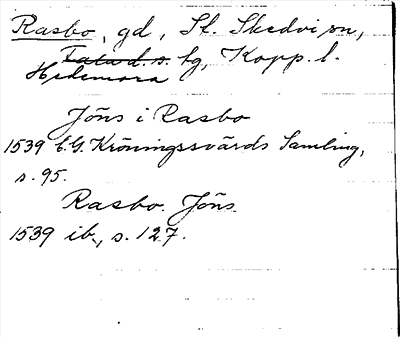 Rasbo, gd, St. Skedvi sn,
Falu d. s. tg, Kopp. l.
Hedemora
Jöns i Rasbo
1539 C.G. Kröningssvärds Samling,
s. 95.
Rasbo. Jöns
1539 ib., s. 127.